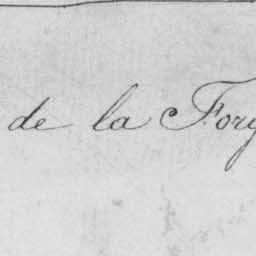 de la Forg